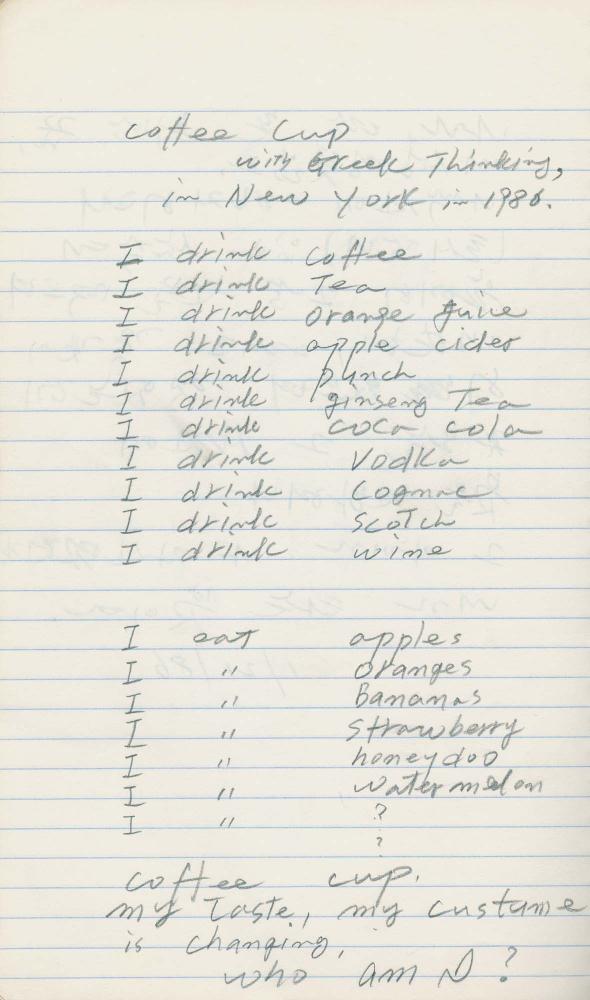 coffee Cup
with Greek Thinking,
in New York in 1986.
I drink coffee
I drink Tea
I drink orange juice
I drink apple cider
I drink punch
I drink ginseng Tea
I drink coca cola
I drink Vodka
I drink Cognac
I drink scotch
I drink wine
I eat apples
I " oranges
I " Bananas
I " strawberry
I " honeydoo
I " watermelon
I " ?
?
coffee cup.
my Taste, my custume
is changing,
who am I ?